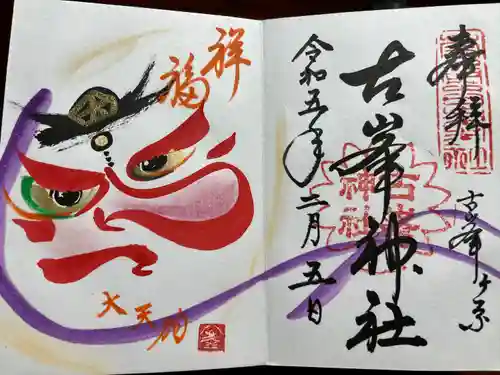 奉拝
古峯ヶ原
古峯神社
令和五年二月五日
祥福
大天狗
古峯
神社